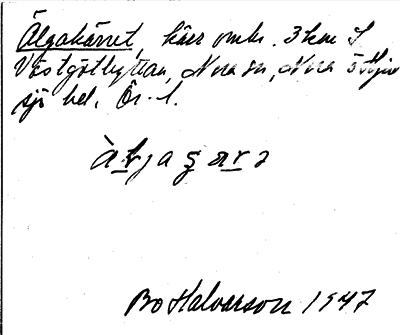 Älgakärret, kärr omkr. 3 km S
Västgöthyttan, Nora sn, Nora o Hjul
sjö bel. Ör. l.
Àɫjaʂarə
Bo Halvarson 1947